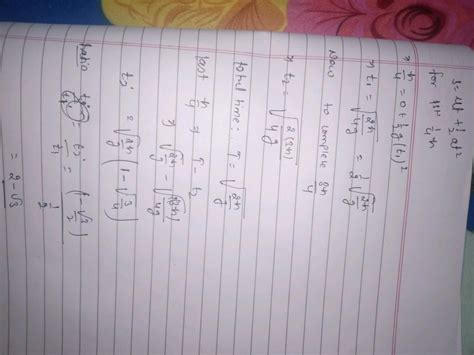 s = ut + ½ at²
for 1st ¼ h
⇒ h/4 = 0 + ½ g (t₁)²
⇒ t₁ = √(2h/4g) = ½ √(2h/g)
Now to complete 3h/4
⇒ t₂ = √(2(3h)/4g)
total time: T = √(2h/g)
last h/4 ⇒ T - t₂
⇒ √(2h/g) - √(2(3h)/4g)
t₃' = √(2h/g) (1 - √(3/4))
ratio = t₃'/t₁ = (1 - √3/2) / ½
= 2 - √3